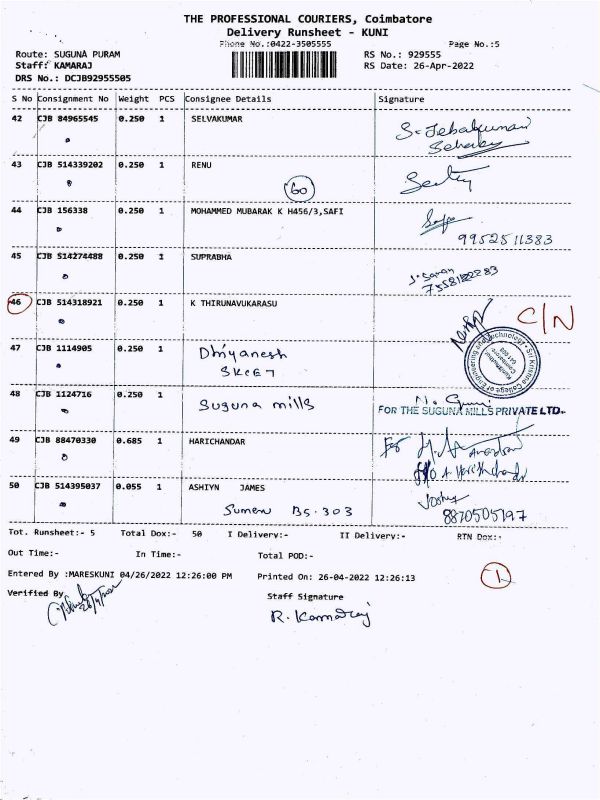 THE PROFESSIONAL COURIERS, Coimbatore
Delivery Runsheet - KUNI
Phone No.:0422-3505555 Page No.:5
Route: SUGUNA PURAM RS No.: 929555
Staff: KAMARAJ RS Date: 26-Apr-2022
DRS No.: DCJB92955505
S No Consignment No Weight PCS Consignee Details Signature
42 CJB 84965545 0.250 1 SELVAKUMAR
43 CJB 514339202 0.250 1 RENU
60
44 CJB 156338 0.250 1 MOHAMMED MUBARAK K H456/3,SAFI
9952511383
45 CJB 514274488 0.250 1 SUPRABHA
46 CJB 514318921 0.250 1 K THIRUNAVUKARASU C/N
47 CJB 1114905 0.250 1 Dhiyanesh
SKCET
48 CJB 1124716 0.250 1 Suguna mills
FOR THE SUGUNA MILLS PRIVATE LTD.
49 CJB 88470330 0.685 1 HARICHANDAR For
50 CJB 514395037 0.055 1 ASHIYN JAMES
8870505197
Tot. Runsheet:- 5 Total Dox:- 50 I Delivery:- II Delivery:- RTN Dox:-
Out Time:- In Time:- Total POD:-
Entered By :MARESKUNI 04/26/2022 12:26:00 PM Printed On: 26-04-2022 12:26:13
1
Verified By Staff Signature
R. Kamaraj